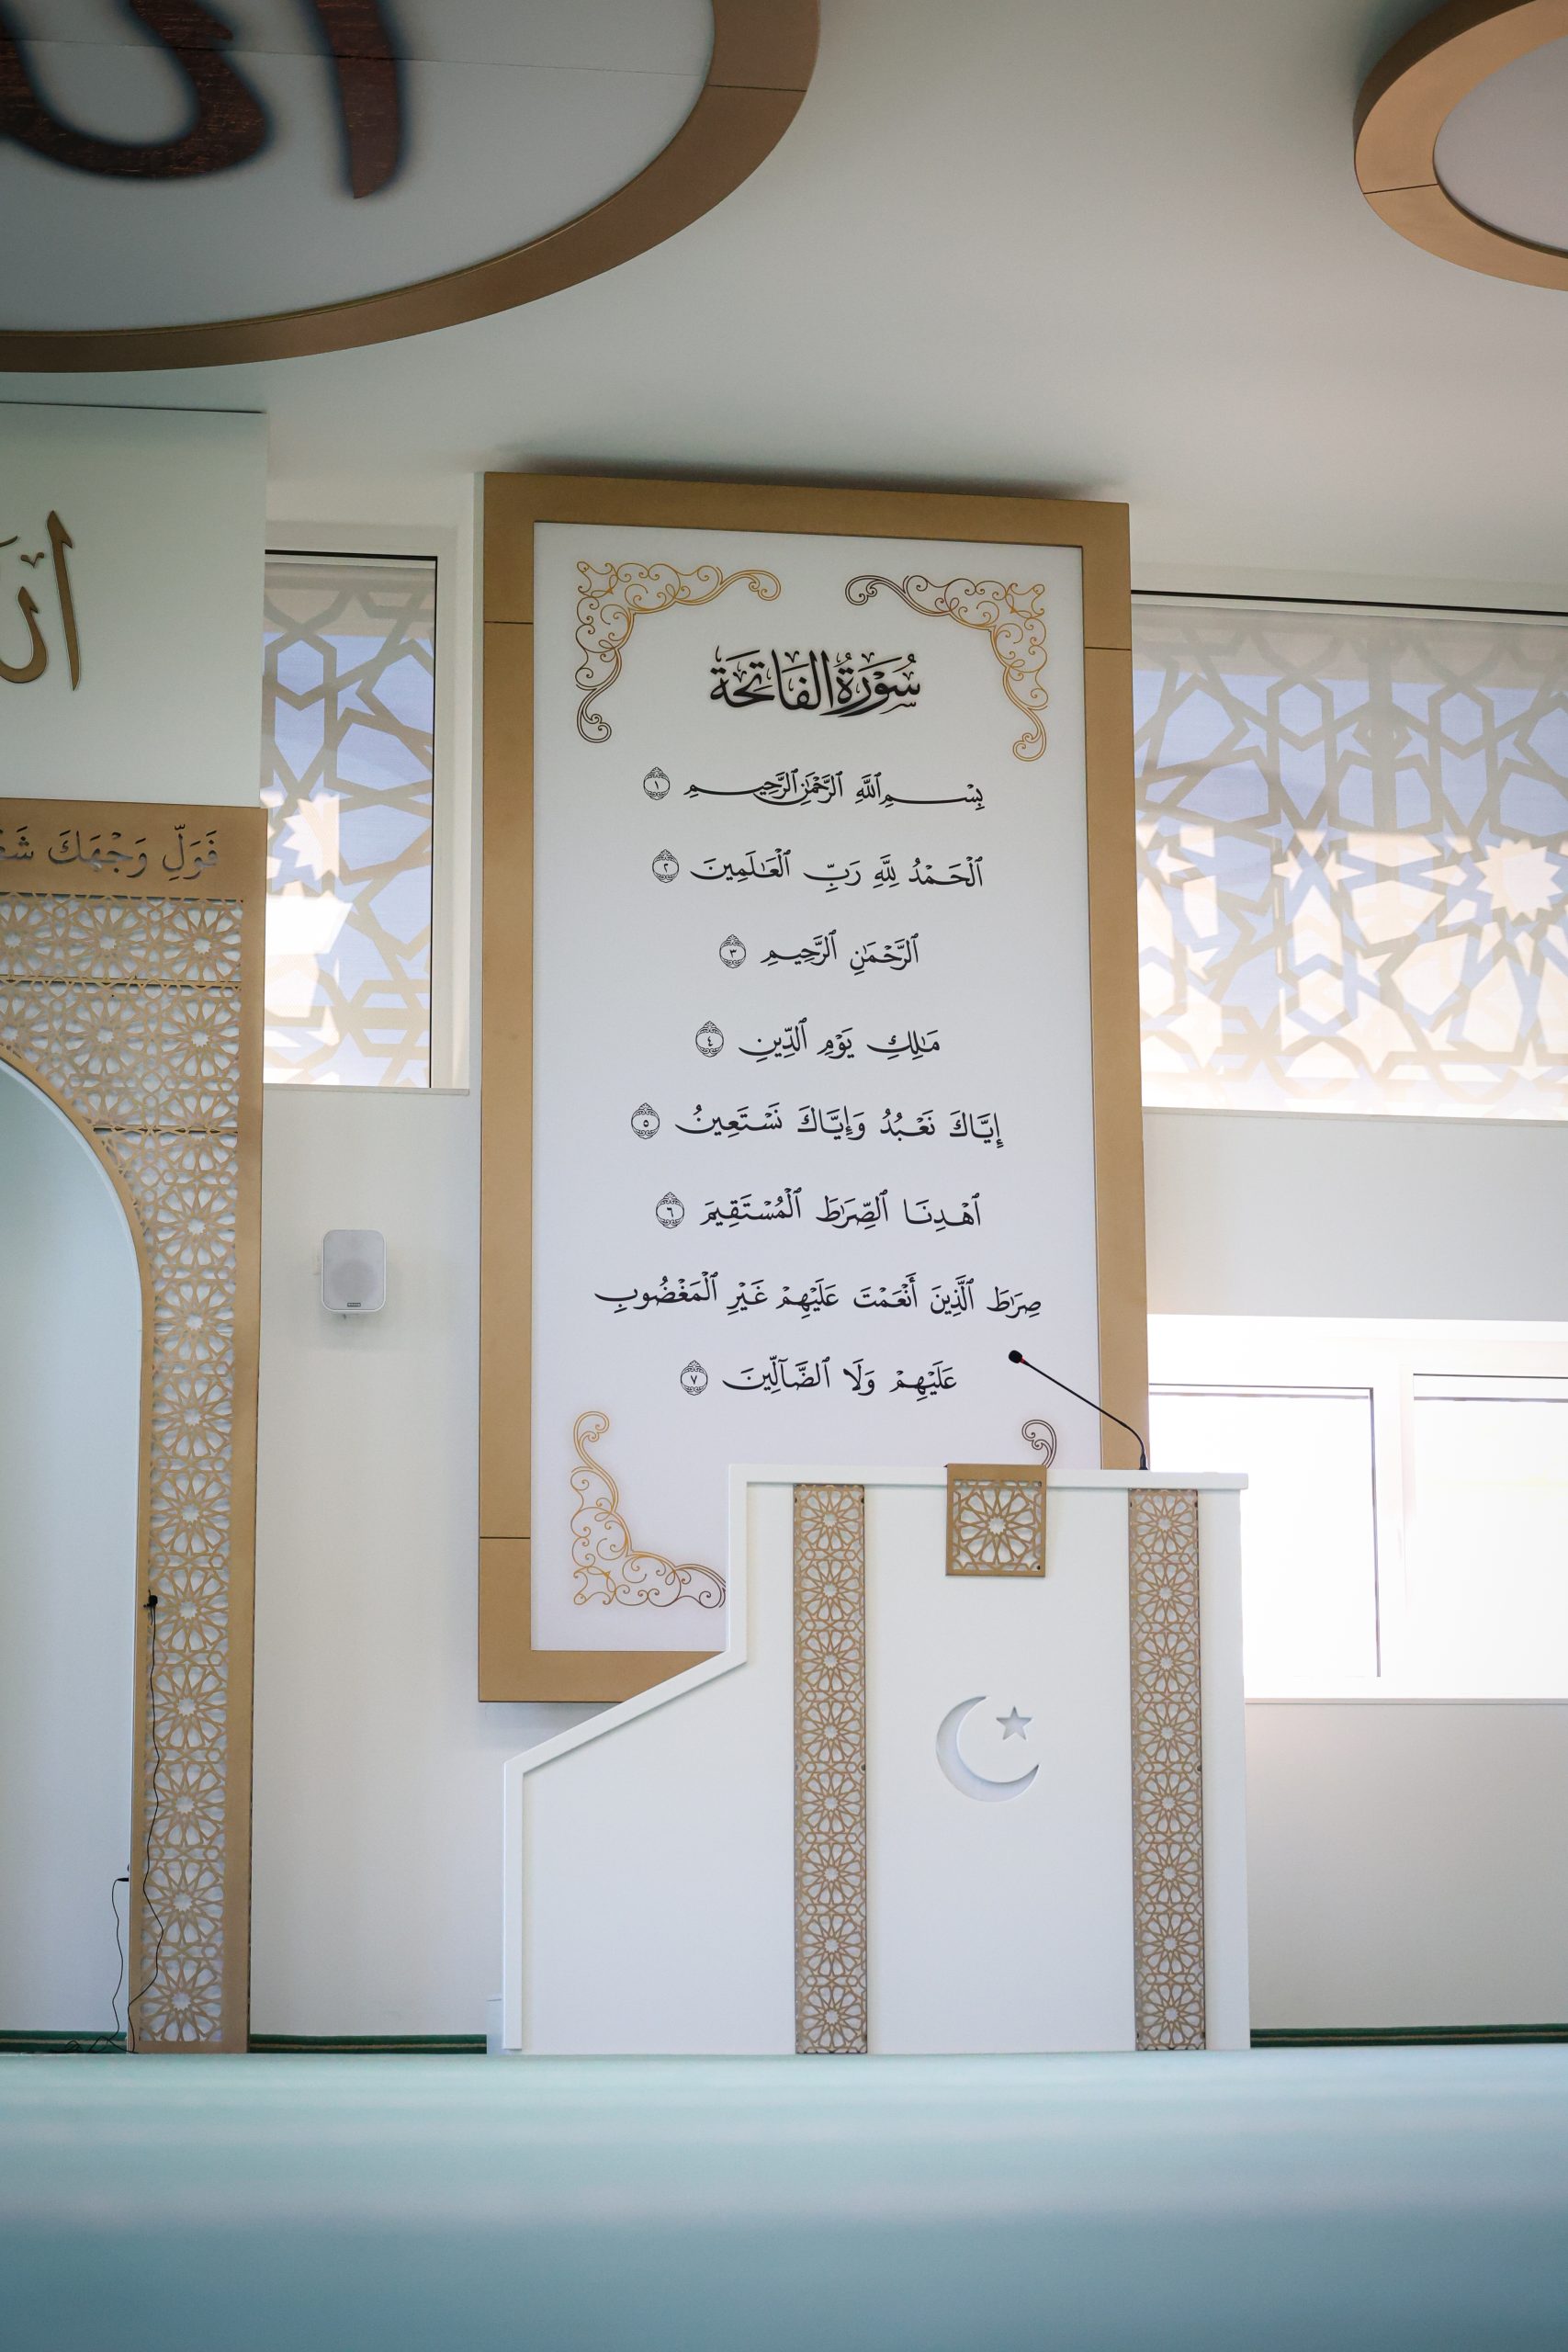 سُورَةُ الفَاتِحَة
بِسْمِ ٱللَّهِ ٱلرَّحْمَٰنِ ٱلرَّحِيمِ ١
ٱلْحَمْدُ لِلَّهِ رَبِّ ٱلْعَـٰلَمِينَ ٢
ٱلرَّحْمَـٰنِ ٱلرَّحِيمِ ٣
مَـٰلِكِ يَوْمِ ٱلدِّينِ ٤
إِيَّاكَ نَعْبُدُ وَإِيَّاكَ نَسْتَعِينُ ٥
ٱهْدِنَا ٱلصِّرَٰطَ ٱلْمُسْتَقِيمَ ٦
صِرَٰطَ ٱلَّذِينَ أَنْعَمْتَ عَلَيْهِمْ غَيْرِ ٱلْمَغْضُوبِ
عَلَيْهِمْ وَلَا ٱلضَّآلِّينَ ٧
فَوَلِّ وَجْهَكَ